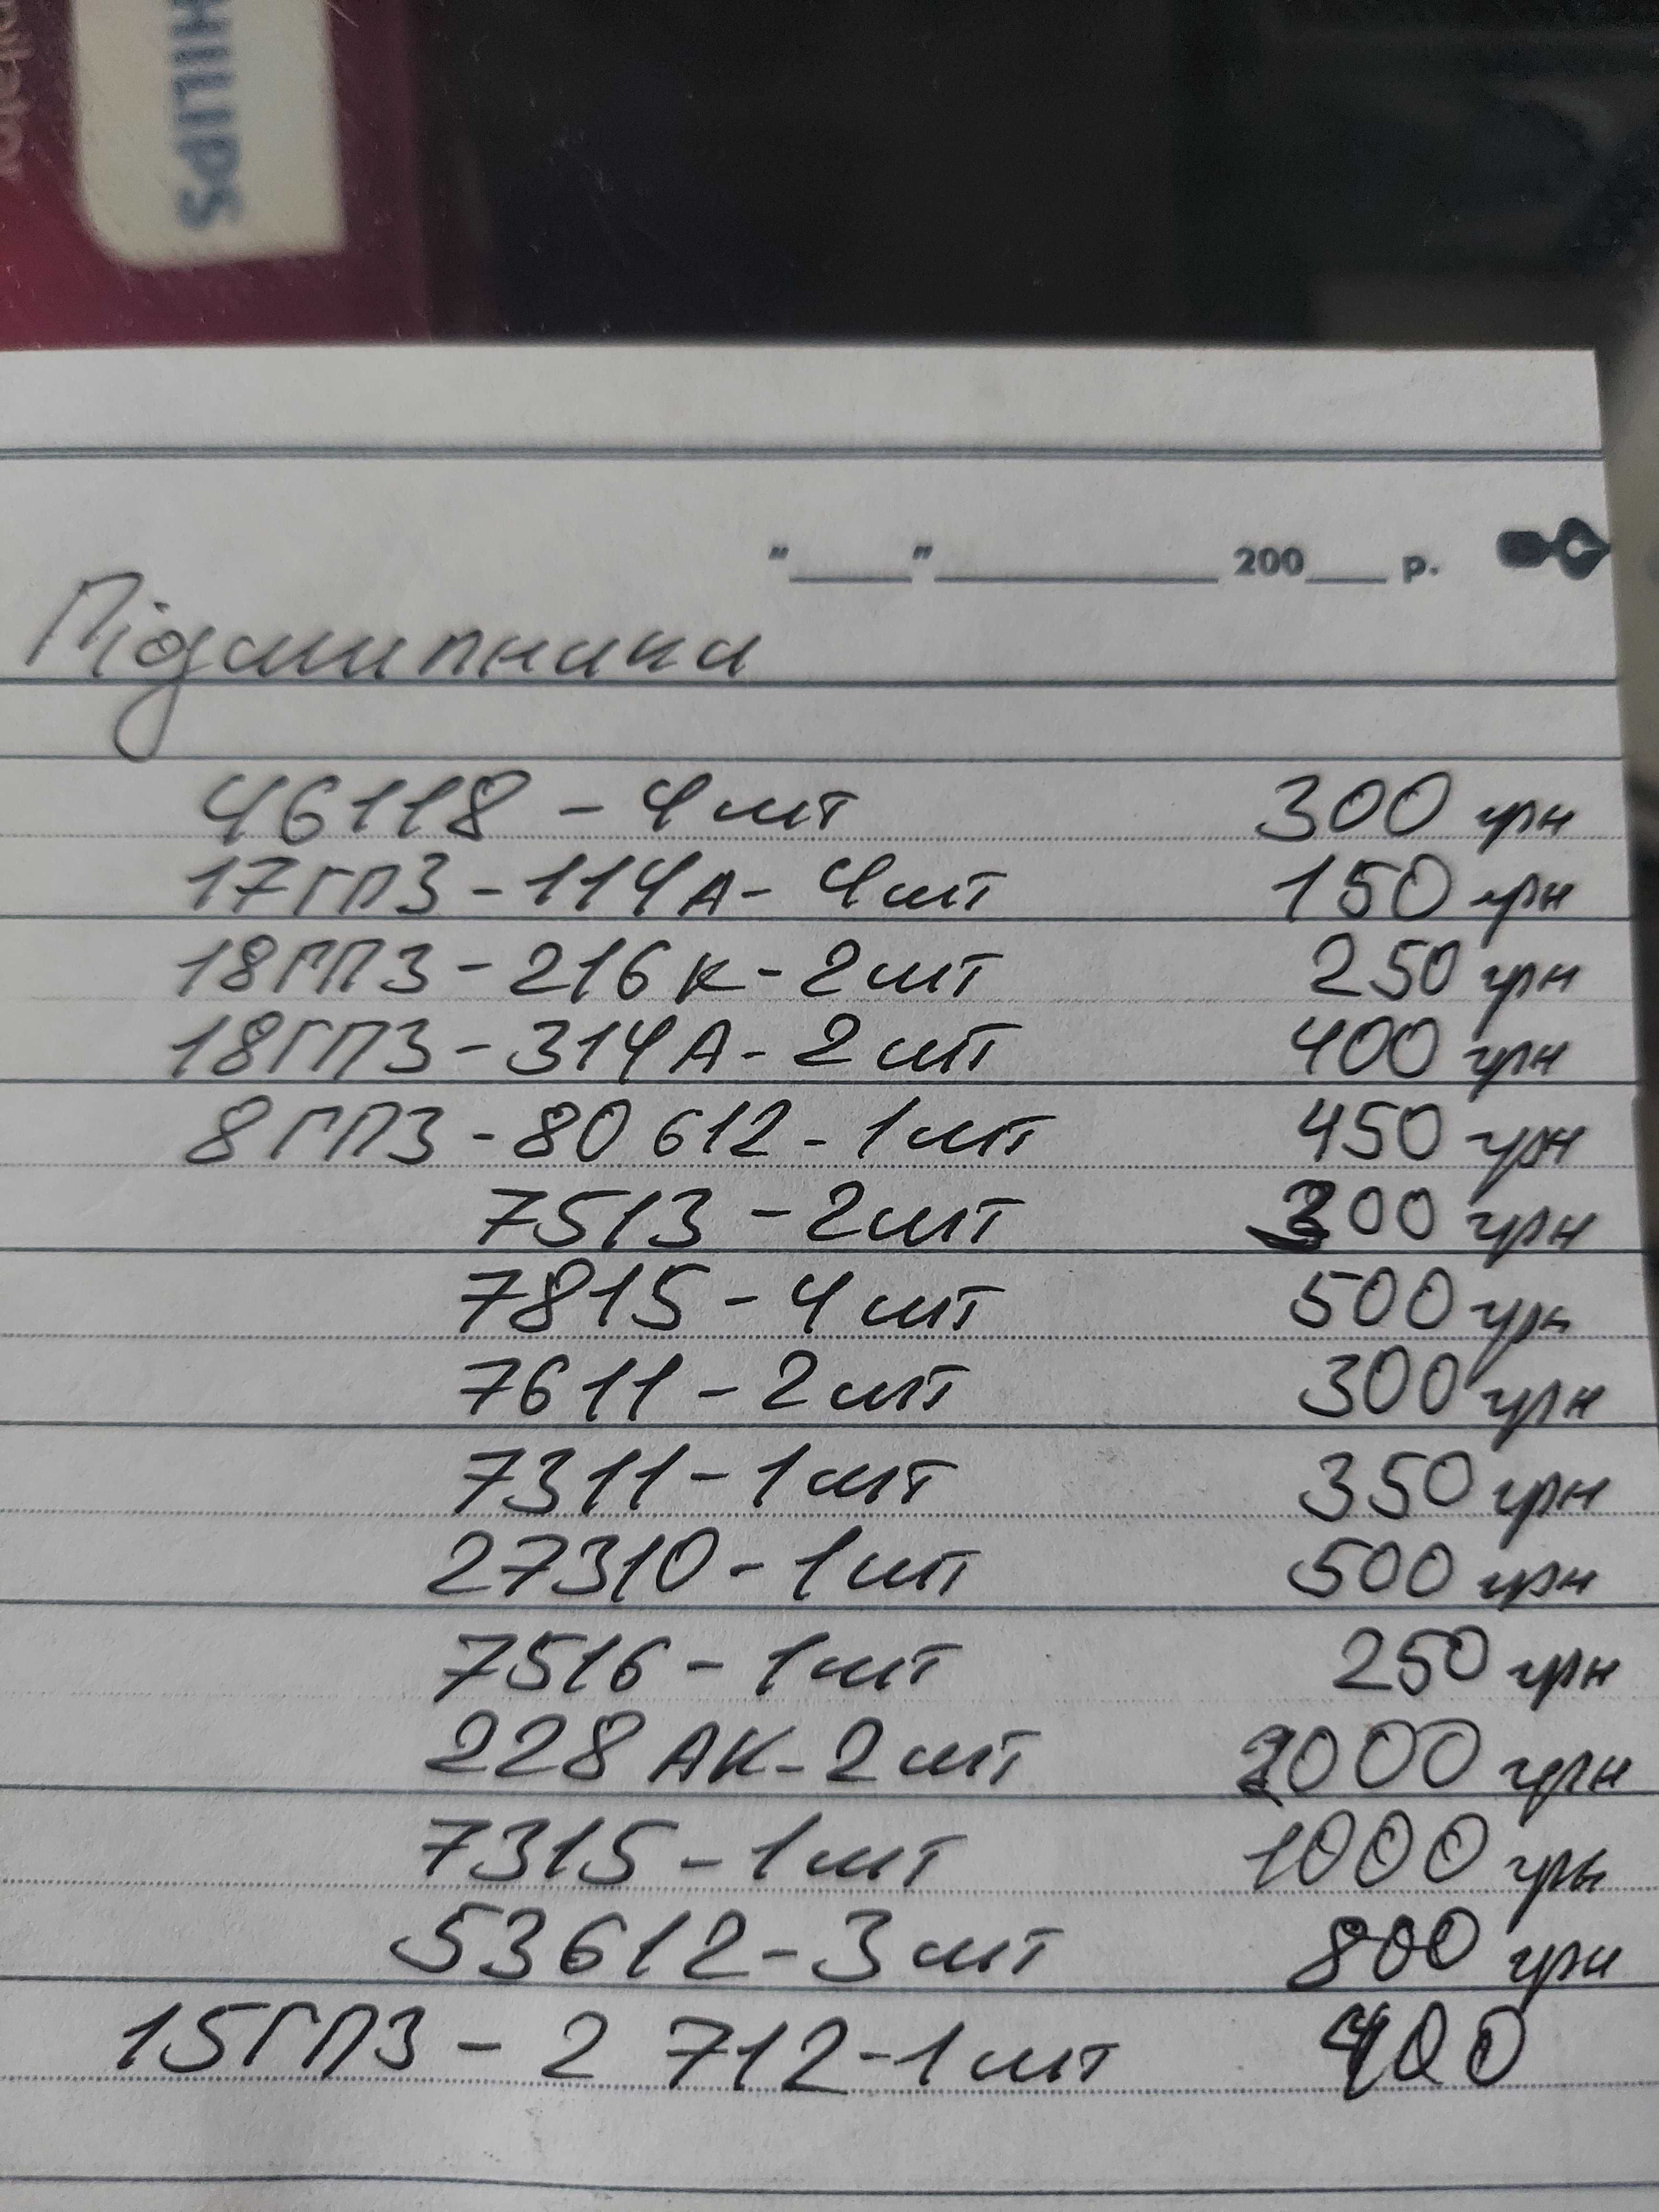 "____" ____________ 200___ р.
Підшипники
46118 - 4 шт 300 грн
17ГПЗ - 114А - 4 шт 150 грн
18ГПЗ - 216К - 2 шт 250 грн
18ГПЗ - 314А - 2 шт 400 грн
8ГПЗ - 80 612 - 1 шт 450 грн
7513 - 2 шт 300 грн
7815 - 4 шт 500 грн
7611 - 2 шт 300 грн
7311 - 1 шт 350 грн
27310 - 1 шт 500 грн
7516 - 1 шт 250 грн
228 АК - 2 шт 2000 грн
7315 - 1 шт 1000 грн
53612 - 3 шт 800 грн
15ГПЗ - 2 712 - 1 шт 400